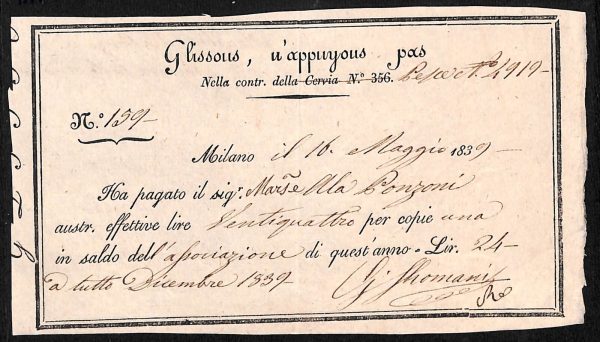 Glissons, n'appuyons pas
Nella contr. della Cervia N.º 356. N.º 2919
N.º 159
Milano il 16. Maggio 1839
Ha pagato il sig.r Marse Ala Ponzoni
austr. effettive lire Ventiquattro per copie una
in saldo dell'associazione di quest'anno - Lir. 24-
a tutto Dicembre 1839